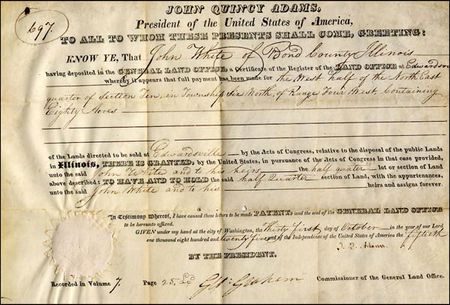 JOHN QUINCY ADAMS,
697.
President of the United States of America,
TO ALL TO WHOM THESE PRESENTS SHALL COME, GREETING:
KNOW YE, That John White of Bond County Illinois
having deposited in the GENERAL LAND OFFICE, a Certificate of the Register of the LAND OFFICE at Edwardsville
whereby it appears that full payment has been made for the West half of the North East
quarter of Section Ten, in Township Six North, of Range Four West Containing
Eighty Acres
of the Lands directed to be sold at Edwardsville by the Acts of Congress, relative to the disposal of the public Lands
in Illinois, THERE IS GRANTED, by the United States, in pursuance of the Acts of Congress in that case provided,
unto the said John White and to his heirs the half quarter lot or Section of Land
above described: TO HAVE AND TO HOLD the said half Quarter section of Land, with the appurtenances,
unto the said John White and to his heirs and assigns forever.
In Testimony Whereof, I have caused these letters to be made PATENT, and the seal of the GENERAL LAND OFFICE
to be hereunto affixed.
GIVEN under my hand at the city of Washington, the Thirty first day of October in the year of our Lord
one thousand eight hundred and twenty five and of the Independence of the United States of America the fiftieth
BY THE PRESIDENT,
J. Q. Adams
Recorded in Volume 7. Page 25 Geo. Graham Commissioner of the General Land Office.